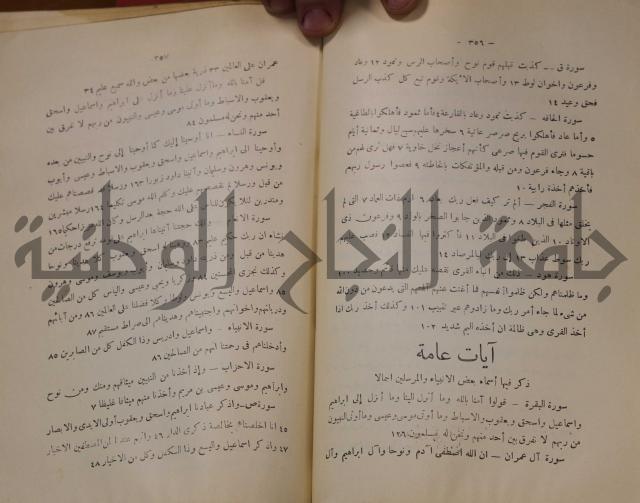 — ٣٥٦ —
سورة ق — كذبت قبلهم قوم نوح وأصحاب الرس وثمود ١٢ وعاد
وفرعون واخوان لوط ١٣ وأصحاب الأيكة وقوم تبع كل كذب الرسل
فحق وعيد ١٤
سورة الحاقة — كذبت ثمود وعاد بالقارعة ٤ فأما ثمود فأهلكوا بالطاغية
٥ وأما عاد فأهلكوا بريح صرصر عاتية ٦ سخرها عليهم سبع ليال وثمانية أيام
حسوما فترى القوم فيها صرعى كأنهم أعجاز نخل خاوية ٧ فهل ترى لهم من
باقية ٨ وجاء فرعون ومن قبله والمؤتفكات بالخاطئة ٩ فعصوا رسول ربهم
فأخذهم أخذة رابية ١٠
سورة الفجر — ألم تر كيف فعل ربك بعاد ٦ ارم ذات العماد ٧ التي لم
يخلق مثلها في البلاد ٨ وثمود الذين جابوا الصخر بالواد ٩ وفرعون ذي
الاوتاد ١٠ الذين طغوا في البلاد ١١ فأكثروا فيها الفساد ١٢ فصب عليهم
ربك سوط عذاب ١٣ إن ربك لبالمرصاد ١٤
سورة هود — ذلك من أنباء القرى نقصه عليك منها قائم وحصيد ١٠٠
وما ظلمناهم ولكن ظلموا أنفسهم فما أغنت عنهم آلهتهم التي يدعون من دون الله
من شيء لما جاء أمر ربك وما زادوهم غير تتبيب ١٠١ وكذلك أخذ ربك اذا
أخذ القرى وهي ظالمة ان أخذه أليم شديد ١٠٢
آيات عامة
ذكر فيها أسماء بعض الانبياء والمرسلين اجمالا
سورة البقرة — قولوا آمنا بالله وما أنزل الينا وما أنزل إلى ابراهيم
واسماعيل واسحق ويعقوب والاسباط وما أوتى موسى وعيسى وما أوتى النبيون
من ربهم لا نفرق بين أحد منهم ونحن له مسلمون ١٣٦
سورة آل عمران — ان الله اصطفى آدم ونوحا وآل ابراهيم وآل
٣٥٧
عمران على العالمين ٣٣ ذرية بعضها من بعض والله سميع عليم ٣٤
قل آمنا بالله وما أنزل علينا وما أنزل على ابراهيم واسماعيل واسحق
ويعقوب والاسباط وما أوتى موسى وعيسى والنبيون من ربهم لا نفرق بين
أحد منهم ونحن له مسلمون ٨٤
سورة النساء — انا أوحينا إليك كما أوحينا إلى نوح والنبيين من بعده
وأوحينا الى ابراهيم واسماعيل واسحق ويعقوب والاسباط وعيسى وأيوب
ويونس وهرون وسليمان وآتينا داود زبورا ١٦٣ ورسلا قد قصصناهم عليك
من قبل ورسلا لم نقصصهم عليك وكلم الله موسى تكليما ١٦٤ رسلا مبشرين
ومنذرين لئلا يكون للناس على الله حجة بعد الرسل وكان الله عزيزا حكيما ١٦٥
سورة الانعام — وتلك حجتنا آتيناها ابراهيم على قومه نرفع درجات من
نشاء ان ربك حكيم عليم ٨٣ ووهبنا له اسحق ويعقوب كلا هدينا ونوحا
هدينا من قبل ومن ذريته داود وسليمان وأيوب ويوسف وموسى وهرون
وكذلك نجزى المحسنين ٨٤ وزكريا ويحيى وعيسى والياس كل من الصالحين
٨٥ واسماعيل واليسع ويونس ولوطا وكلا فضلنا على العالمين ٨٦ ومن آبائهم
وذرياتهم واخوانهم واجتبيناهم وهديناهم الى صراط مستقيم ٨٧
سورة الانبياء — واسماعيل وادريس وذا الكفل كل من الصابرين ٨٥
وأدخلناهم في رحمتنا انهم من الصالحين ٨٦
سورة الاحزاب — وإذ أخذنا من النبيين ميثاقهم ومنك ومن نوح
وابراهيم وموسى وعيسى بن مريم وأخذنا منهم ميثاقا غليظا ٧
سورة ص — واذكر عبادنا ابراهيم واسحق ويعقوب أولى الايدى والابصار
٤٥ انا أخلصناهم بخالصة ذكرى الدار ٤٦ وانهم عندنا لمن المصطفين الاخيار
٤٧ واذكر اسماعيل واليسع وذا الكفل وكل من الاخيار ٤٨
جامعة النجاح الوطنية